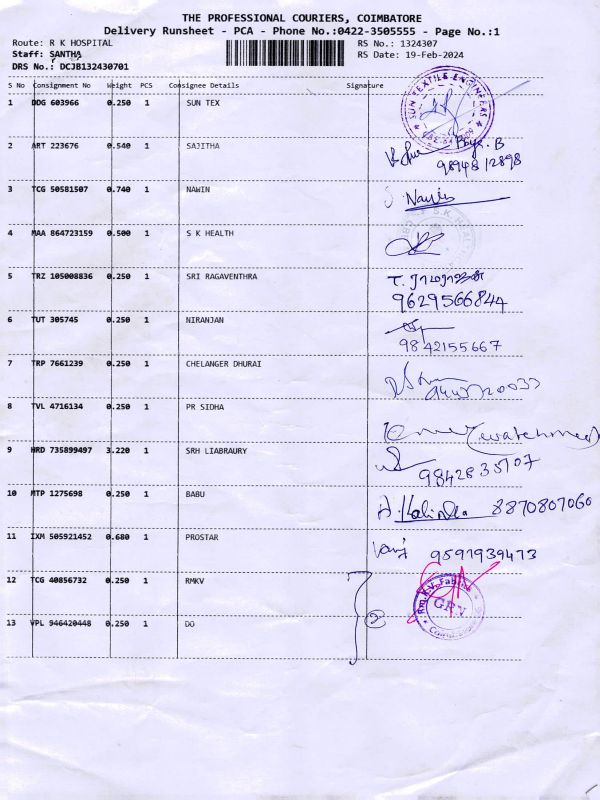 THE PROFESSIONAL COURIERS, COIMBATORE
Delivery Runsheet - PCA - Phone No.:0422-3505555 - Page No.:1
Route: R K HOSPITAL RS No.: 1324307
Staff: SANTHA RS Date: 19-Feb-2024
DRS No.: DCJB132430701
S No Consignment No Weight PCS Consignee Details Signature
1 DDG 603966 0.250 1 SUN TEX
SUN TEXTILE ENGINEERS
2 ART 223676 0.540 1 SAJITHA
3 TCG 50581507 0.740 1 NAWIN
4 MAA 864723159 0.500 1 S K HEALTH
5 TRZ 105008836 0.250 1 SRI RAGAVENTHRA
9629566844
6 TUT 305745 0.250 1 NIRANJAN
9842155667
7 TRP 7661239 0.250 1 CHELANGER DHURAI
8 TVL 4716134 0.250 1 PR SIDHA
(watchmen)
9 HRD 735899497 3.220 1 SRH LIABRAURY
10 MTP 1275698 0.250 1 BABU
8870807060
11 IXM 505921452 0.680 1 PROSTAR
12 TCG 40856732 0.250 1 RMKV
13 VPL 946420448 0.250 1 DO
2